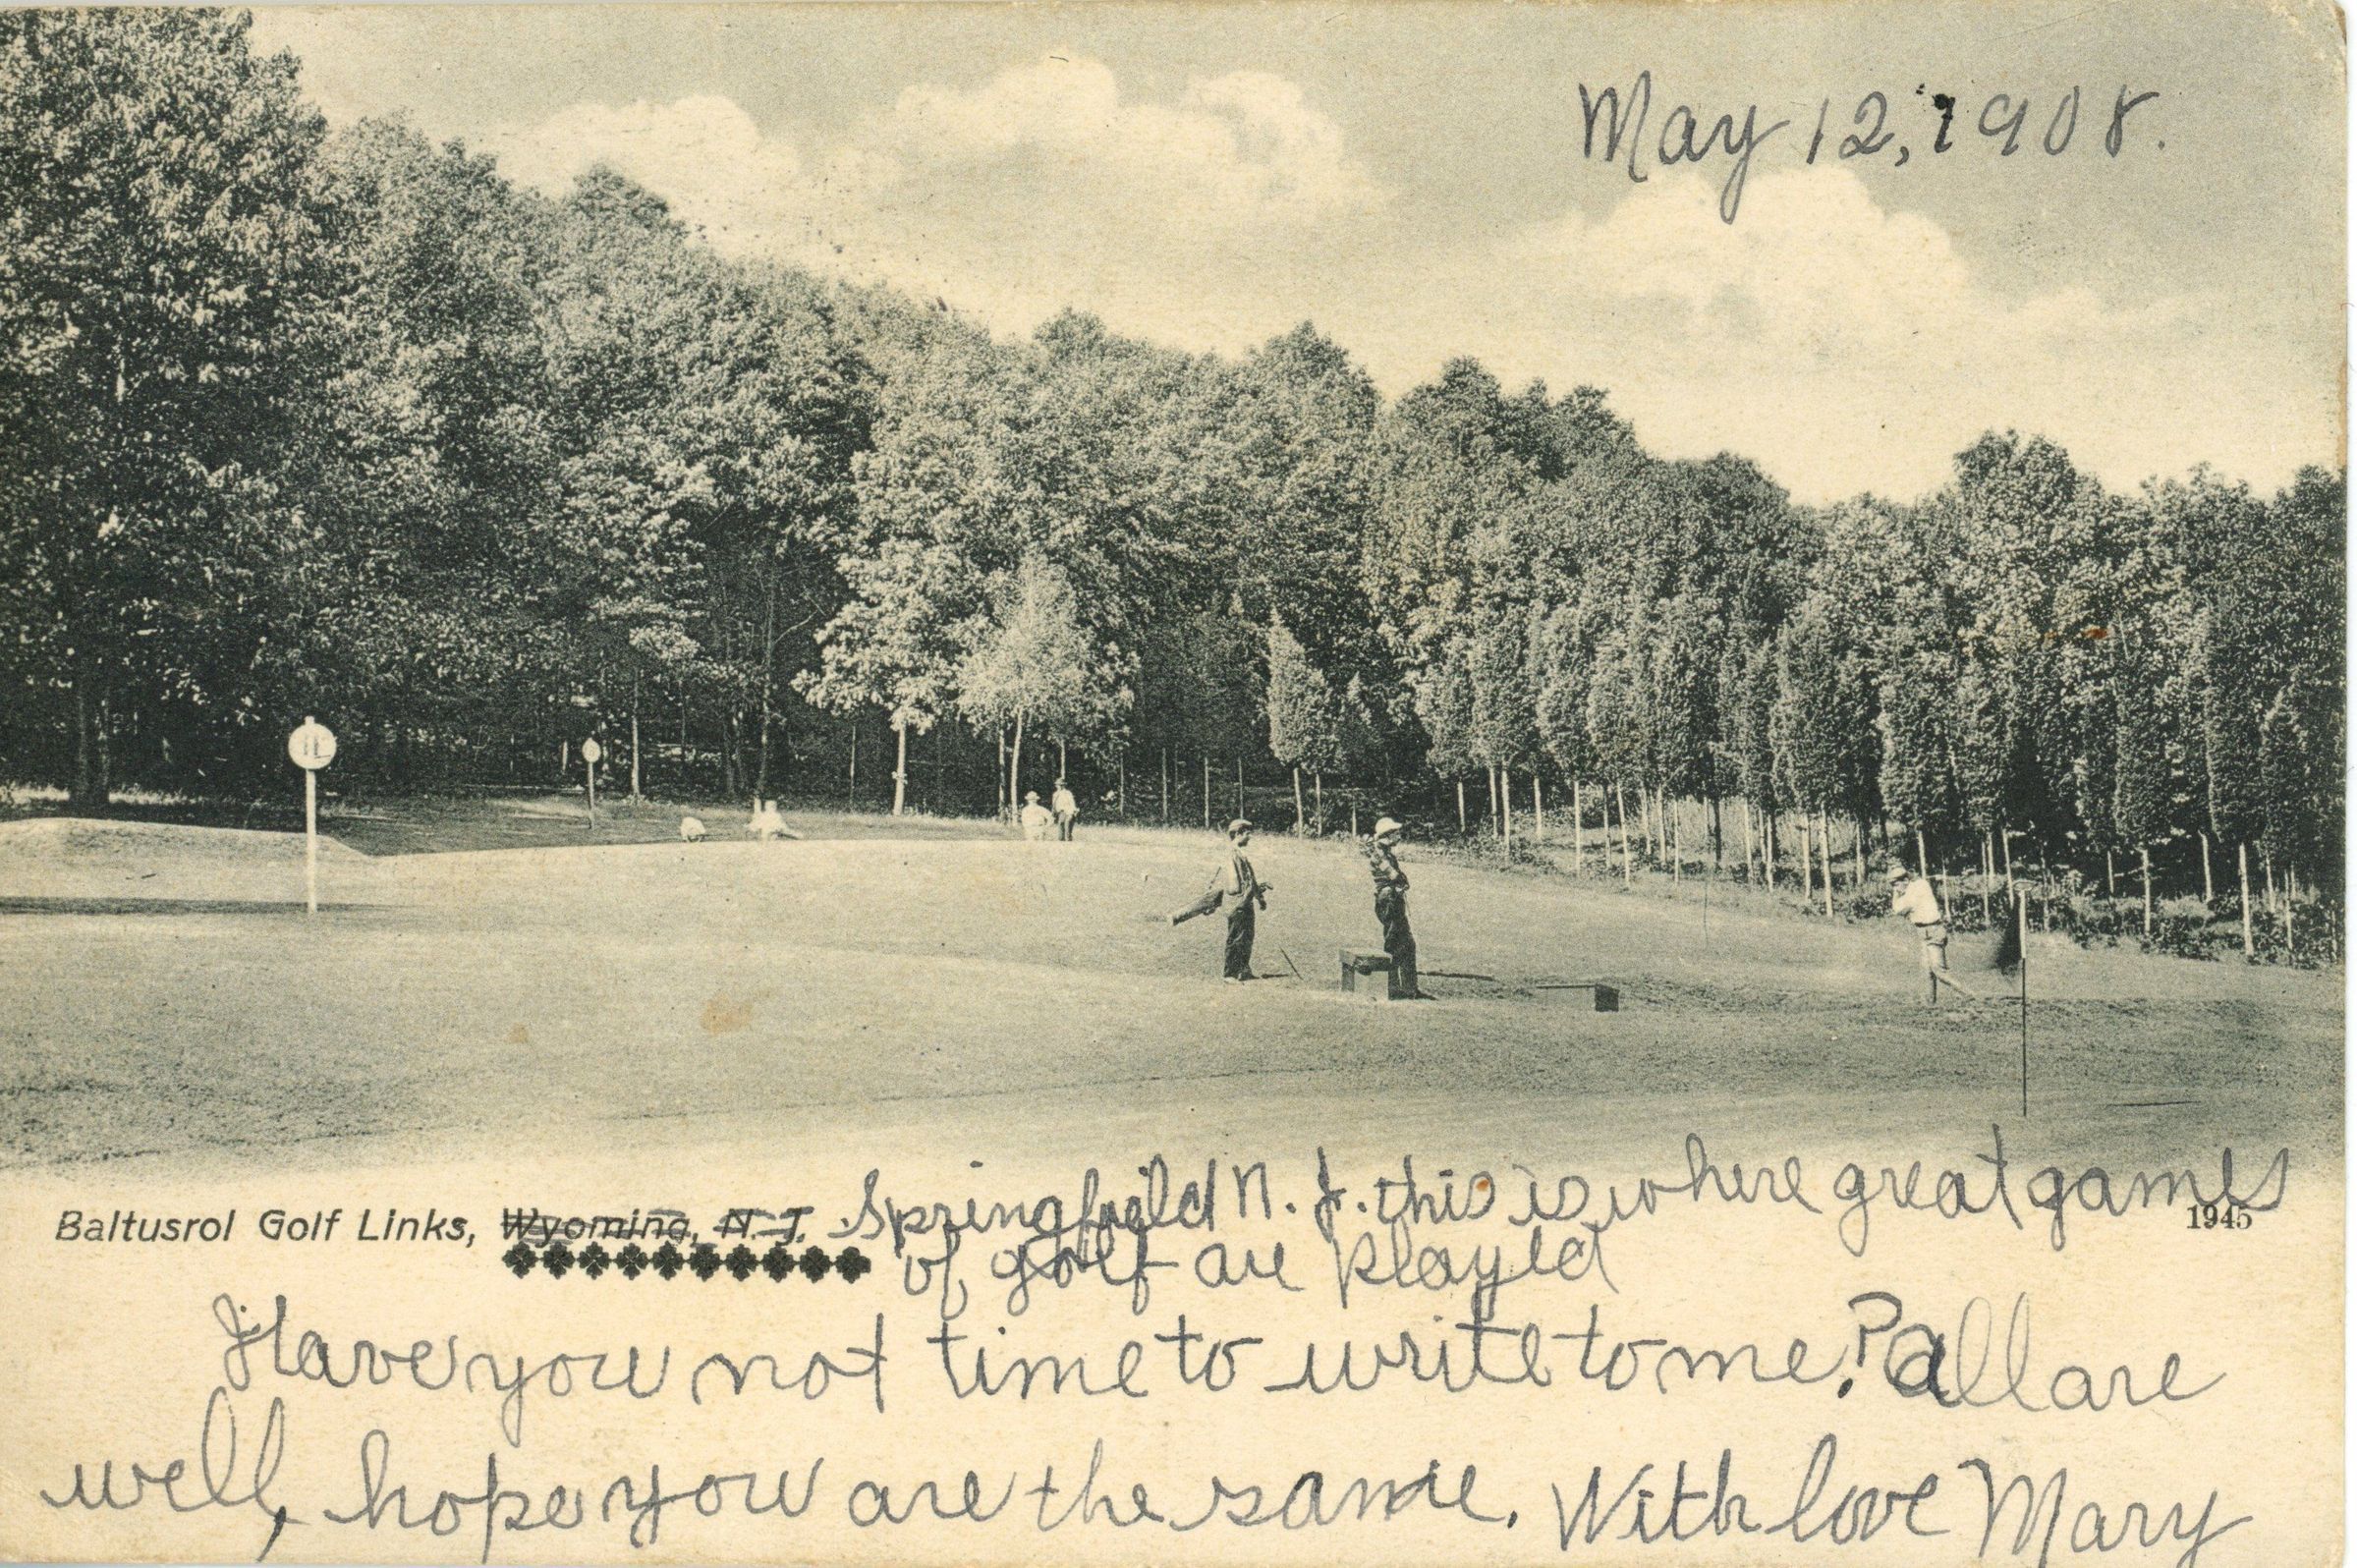 May 12, 1908.
Baltusrol Golf Links, Wyoming, N. J. Springfield N. J. this is where great games
1945
of golf are played
Have you not time to write to me? All are
well, hope you are the same. With love Mary